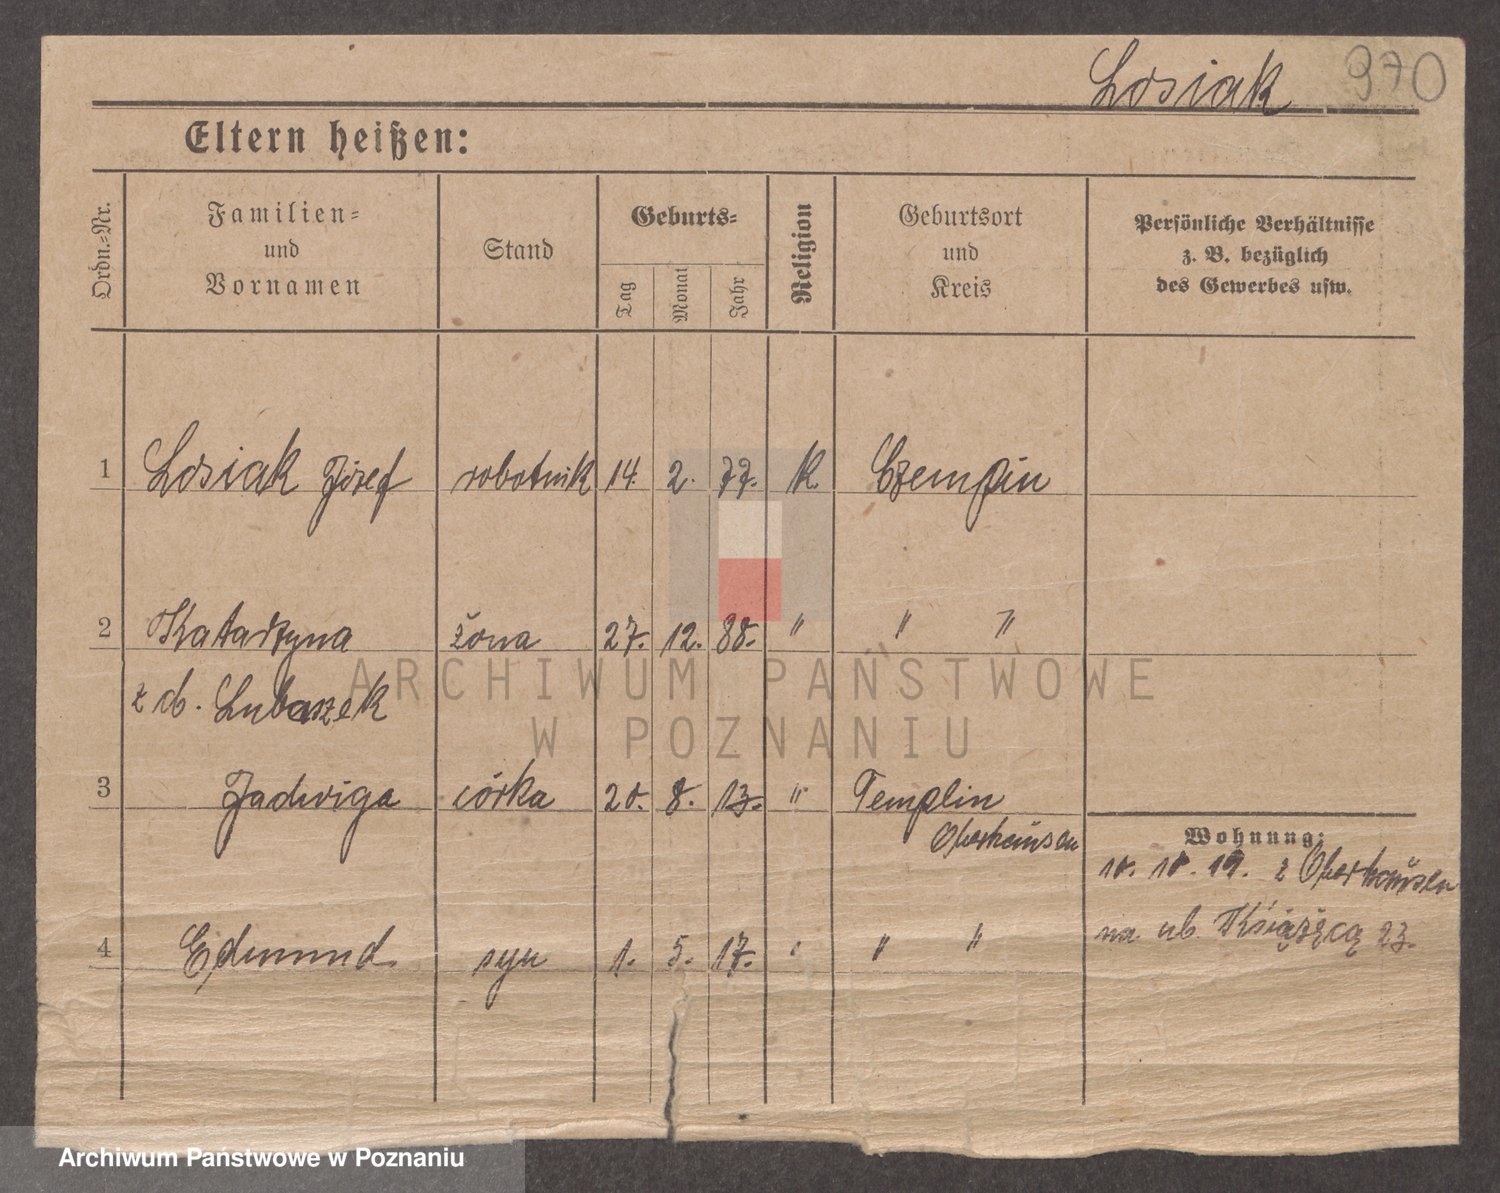 Losiak 970
Eltern heißen:
Ordn.=Nr.
Familien=
und
Vornamen
Stand
Geburts=
Tag Monat Jahr
Religion
Geburtsort
und
Kreis
Persönliche Verhältnisse
z. B. bezüglich
des Gewerbes usw.
1 Losiak Józef robotnik 14. 2. 77. k. Czempin
2 Katarzyna żona 27. 12. 88. " " "
z d. Lubaszek
3 Jadwiga córka 20. 8. 13. " Templin
Oberhausen
Wohnung:
10. 10. 19. z Oberhausen
na ul. Książęcą 23.
4 Edmund syn 1. 5. 17. " " "
ARCHIWUM PAŃSTWOWE
W POZNANIU
Archiwum Państwowe w Poznaniu